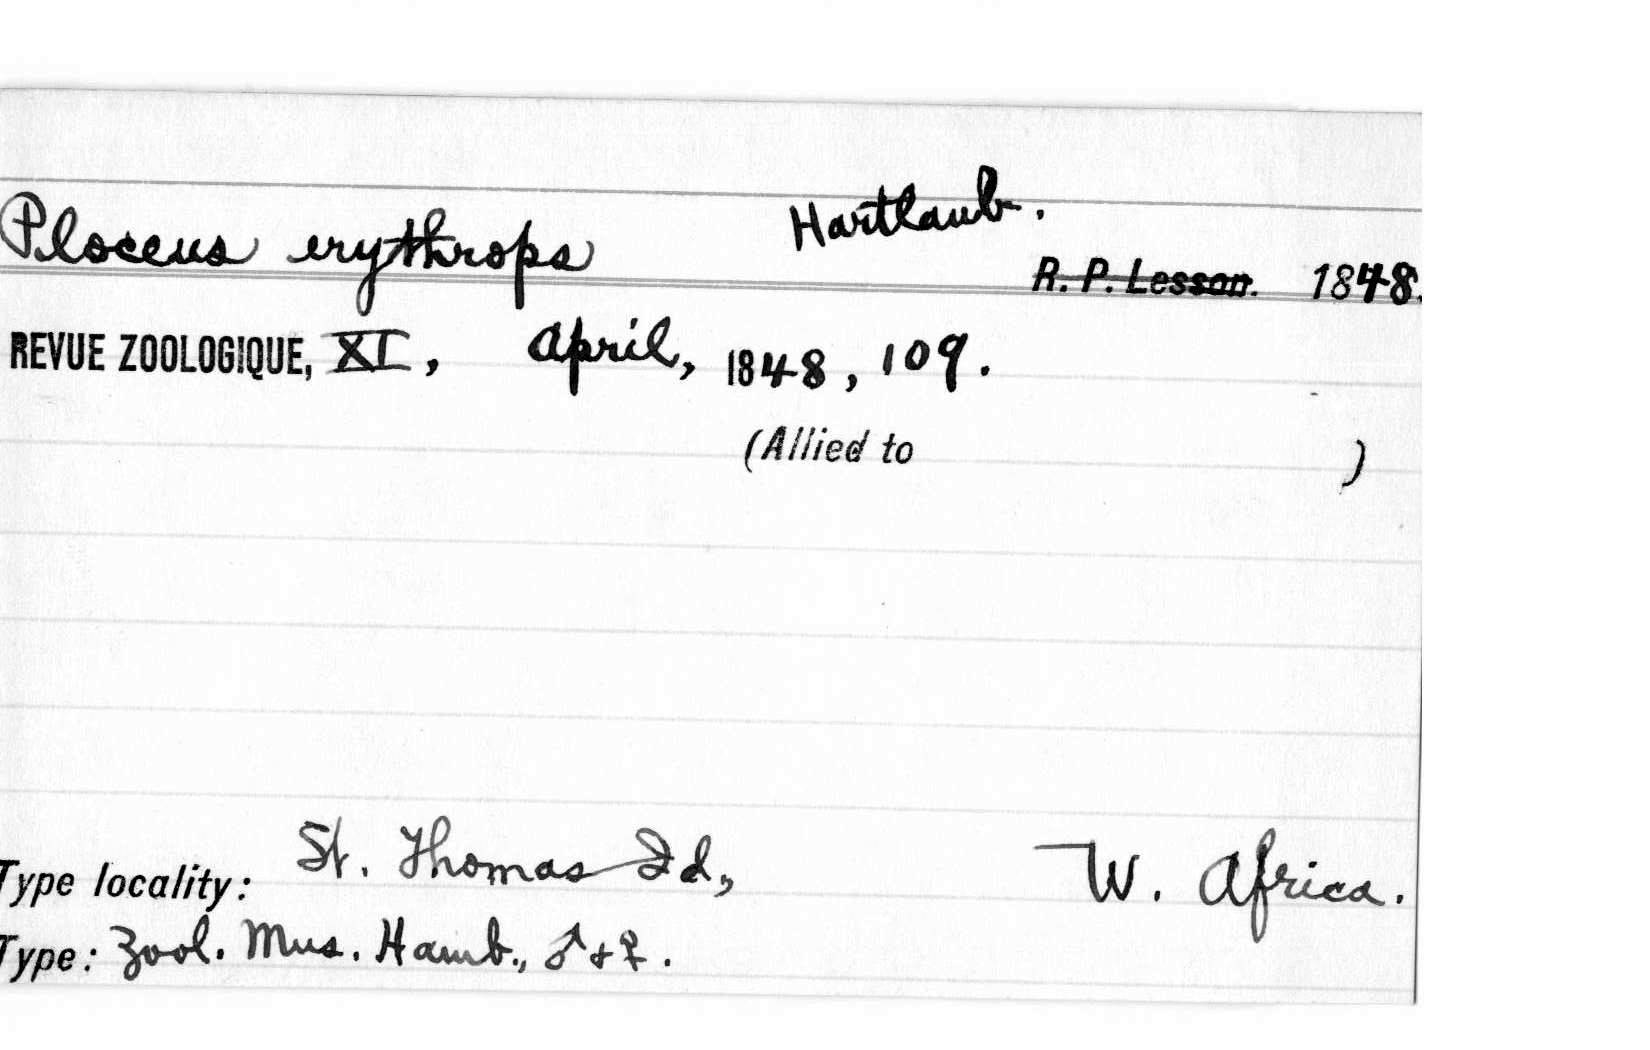 Hartlaub.
Ploceus erythrops R. P. Lesson. 1848.
REVUE ZOOLOGIQUE, XI, April, 1848, 109.
(Allied to )
Type locality: St. Thomas Id., W. Africa.
Type: Zool. Mus. Hamb., ♂ + ♀.